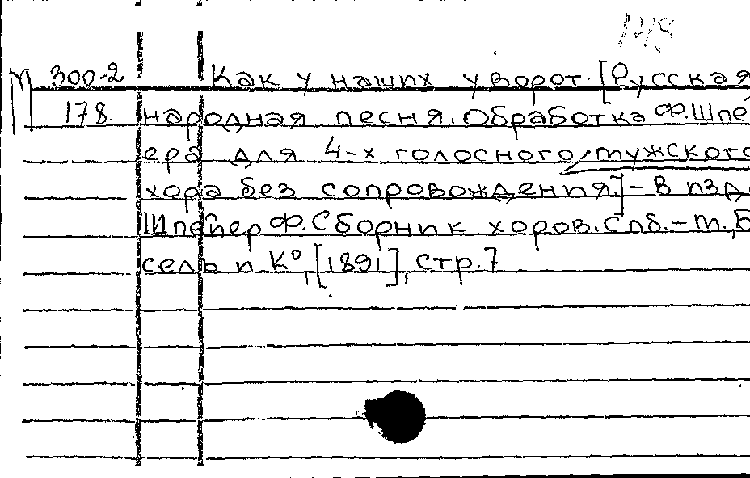 300-2 Как у наших у ворот. [Русская
178 народная песня. Обработка Ф. Шпе-
ера для 4-х голосного, мужского
хора без сопровождения.] - В изд.
Шпейер Ф. Сборник хоров. Спб. - М., Б
сель и К°, [1891], стр. 7